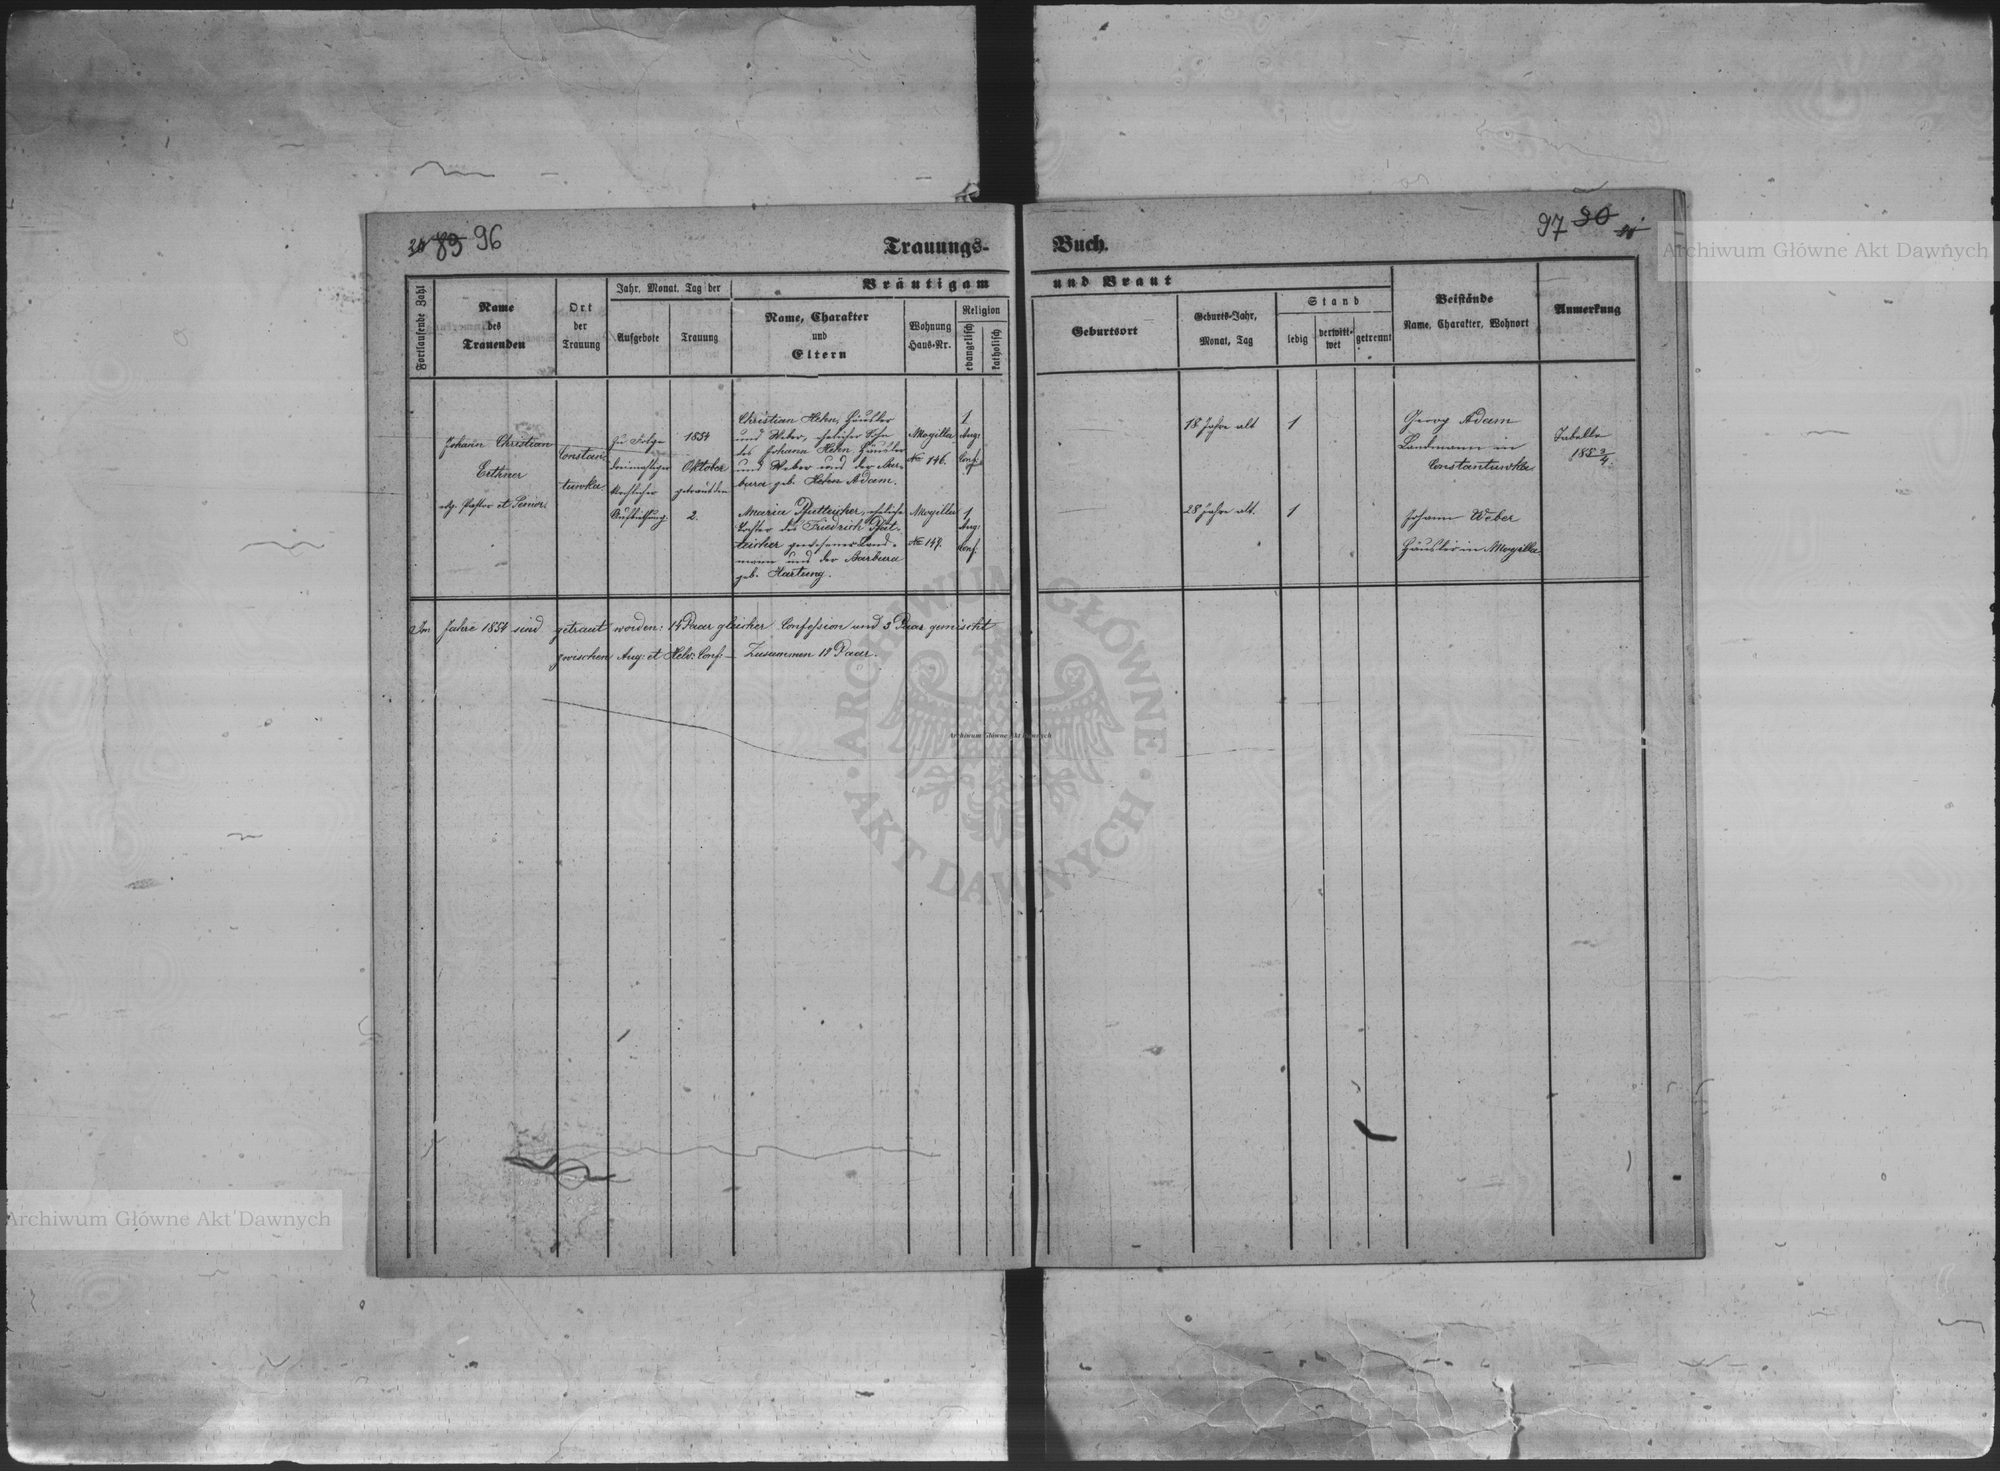 89 96
Trauungs-
Buch.
97 90
Archiwum Główne Akt Dawnych
Fortlaufende Zahl
Name
des
Trauenden
Ort
der
Trauung
Jahr, Monat, Tag der
Aufgebote
Trauung
Bräutigam
Name, Charakter
und
Eltern
Wohnung
Haus-Nr.
Religion
evangelisch
katholisch
und Braut
Geburtsort
Geburts-Jahr,
Monat, Tag
Stand
ledig
verwitt-
wet
getrennt
Beistände
Name, Charakter, Wohnort
Anmerkung
Johann Christian
evg. Pastor et Senior.
Constan-
tuwka
Zu Folge
dreimaliger
kirchlicher
1854
Oktober
getraut den
2.
Christian Hehn, Häusler
und Weber, ehelicher Sohn
des Johann Hehn Häusler
und Weber und der Bar-
bara geb. Hehn Adam.
Mogilla
No 146.
1
Aug:
Conf:
18 Jahre alt
1
Georg Adam
Landmann in
Constantuwka
Tabelle
185 3/4.
Maria Pfutleicher, eheliche
Tochter des Friedrich Pfut-
leicher gewesener Land-
mann und der Barbara
geb. Hartung.
Mogilla
No 147.
1
Aug:
Conf:
28 Jahre alt.
1
Johann Weber
Häusler in Mogilla
Im Jahre 1854 sind getraut worden: 14 Paar gleicher Confession und 5 Paar gemischt
zwischen Aug: et Helv: Conf: — Zusammen 19 Paar.
ARCHIWUM GŁÓWNE
Archiwum Główne Akt Dawnych
AKT DAWNYCH
Archiwum Główne Akt Dawnych